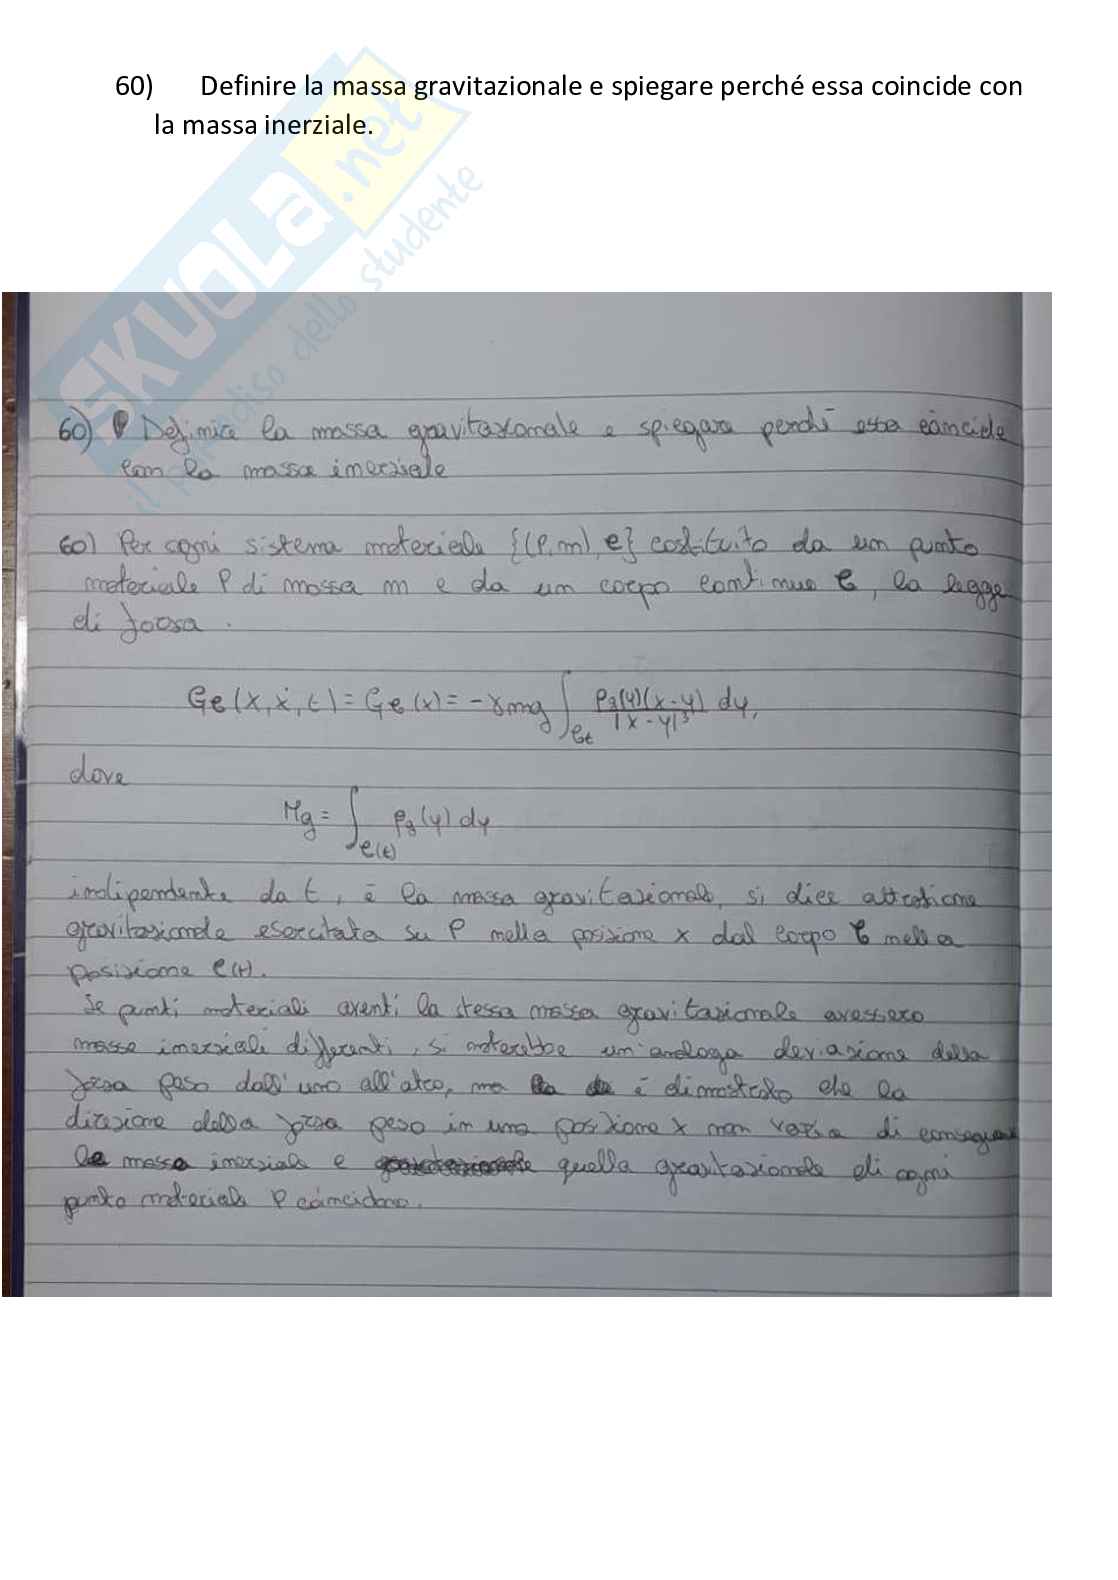 60) Definire la massa gravitazionale e spiegare perché essa coincide con
la massa inerziale.
SKUOLA.net
il paradiso dello studente
60) Definire la massa gravitazionale e spiegare perché essa coincide
con la massa inerziale
60) Per ogni sistema materiale {(P,m), C} costituito da un punto
materiale P di massa m e da un corpo continuo C, la legge
di forza.
Ge(x, ẋ, t) = Ge(x) = -γmg ∫_Ct ρg(y)(x-y)/|x-y|³ dy,
dove
Mg = ∫_C(t) ρg(y) dy
indipendente da t, è la massa gravitazionale, si dice attrazione
gravitazionale esercitata su P nella posizione x dal corpo C nella
posizione C(t).
Se punti materiali aventi la stessa massa gravitazionale avessero
masse inerziali differenti, si noterebbe un'analoga deviazione della
forza peso dall'uno all'altro, ma è dimostrato che la
direzione della forza peso in una posizione x non varia di conseguenza
la massa inerziale e quella gravitazionale di ogni
punto materiale P coincidono.